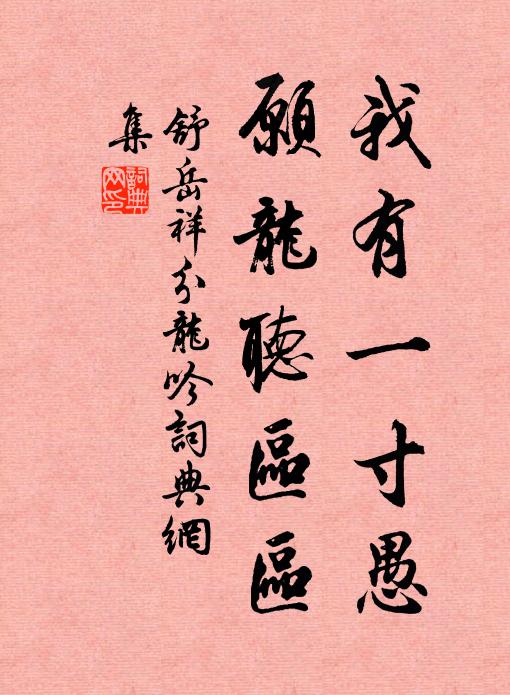 我有一寸愚
願龍聽區區
舒岳祥分龍吟詞典網
集
詞典
网印